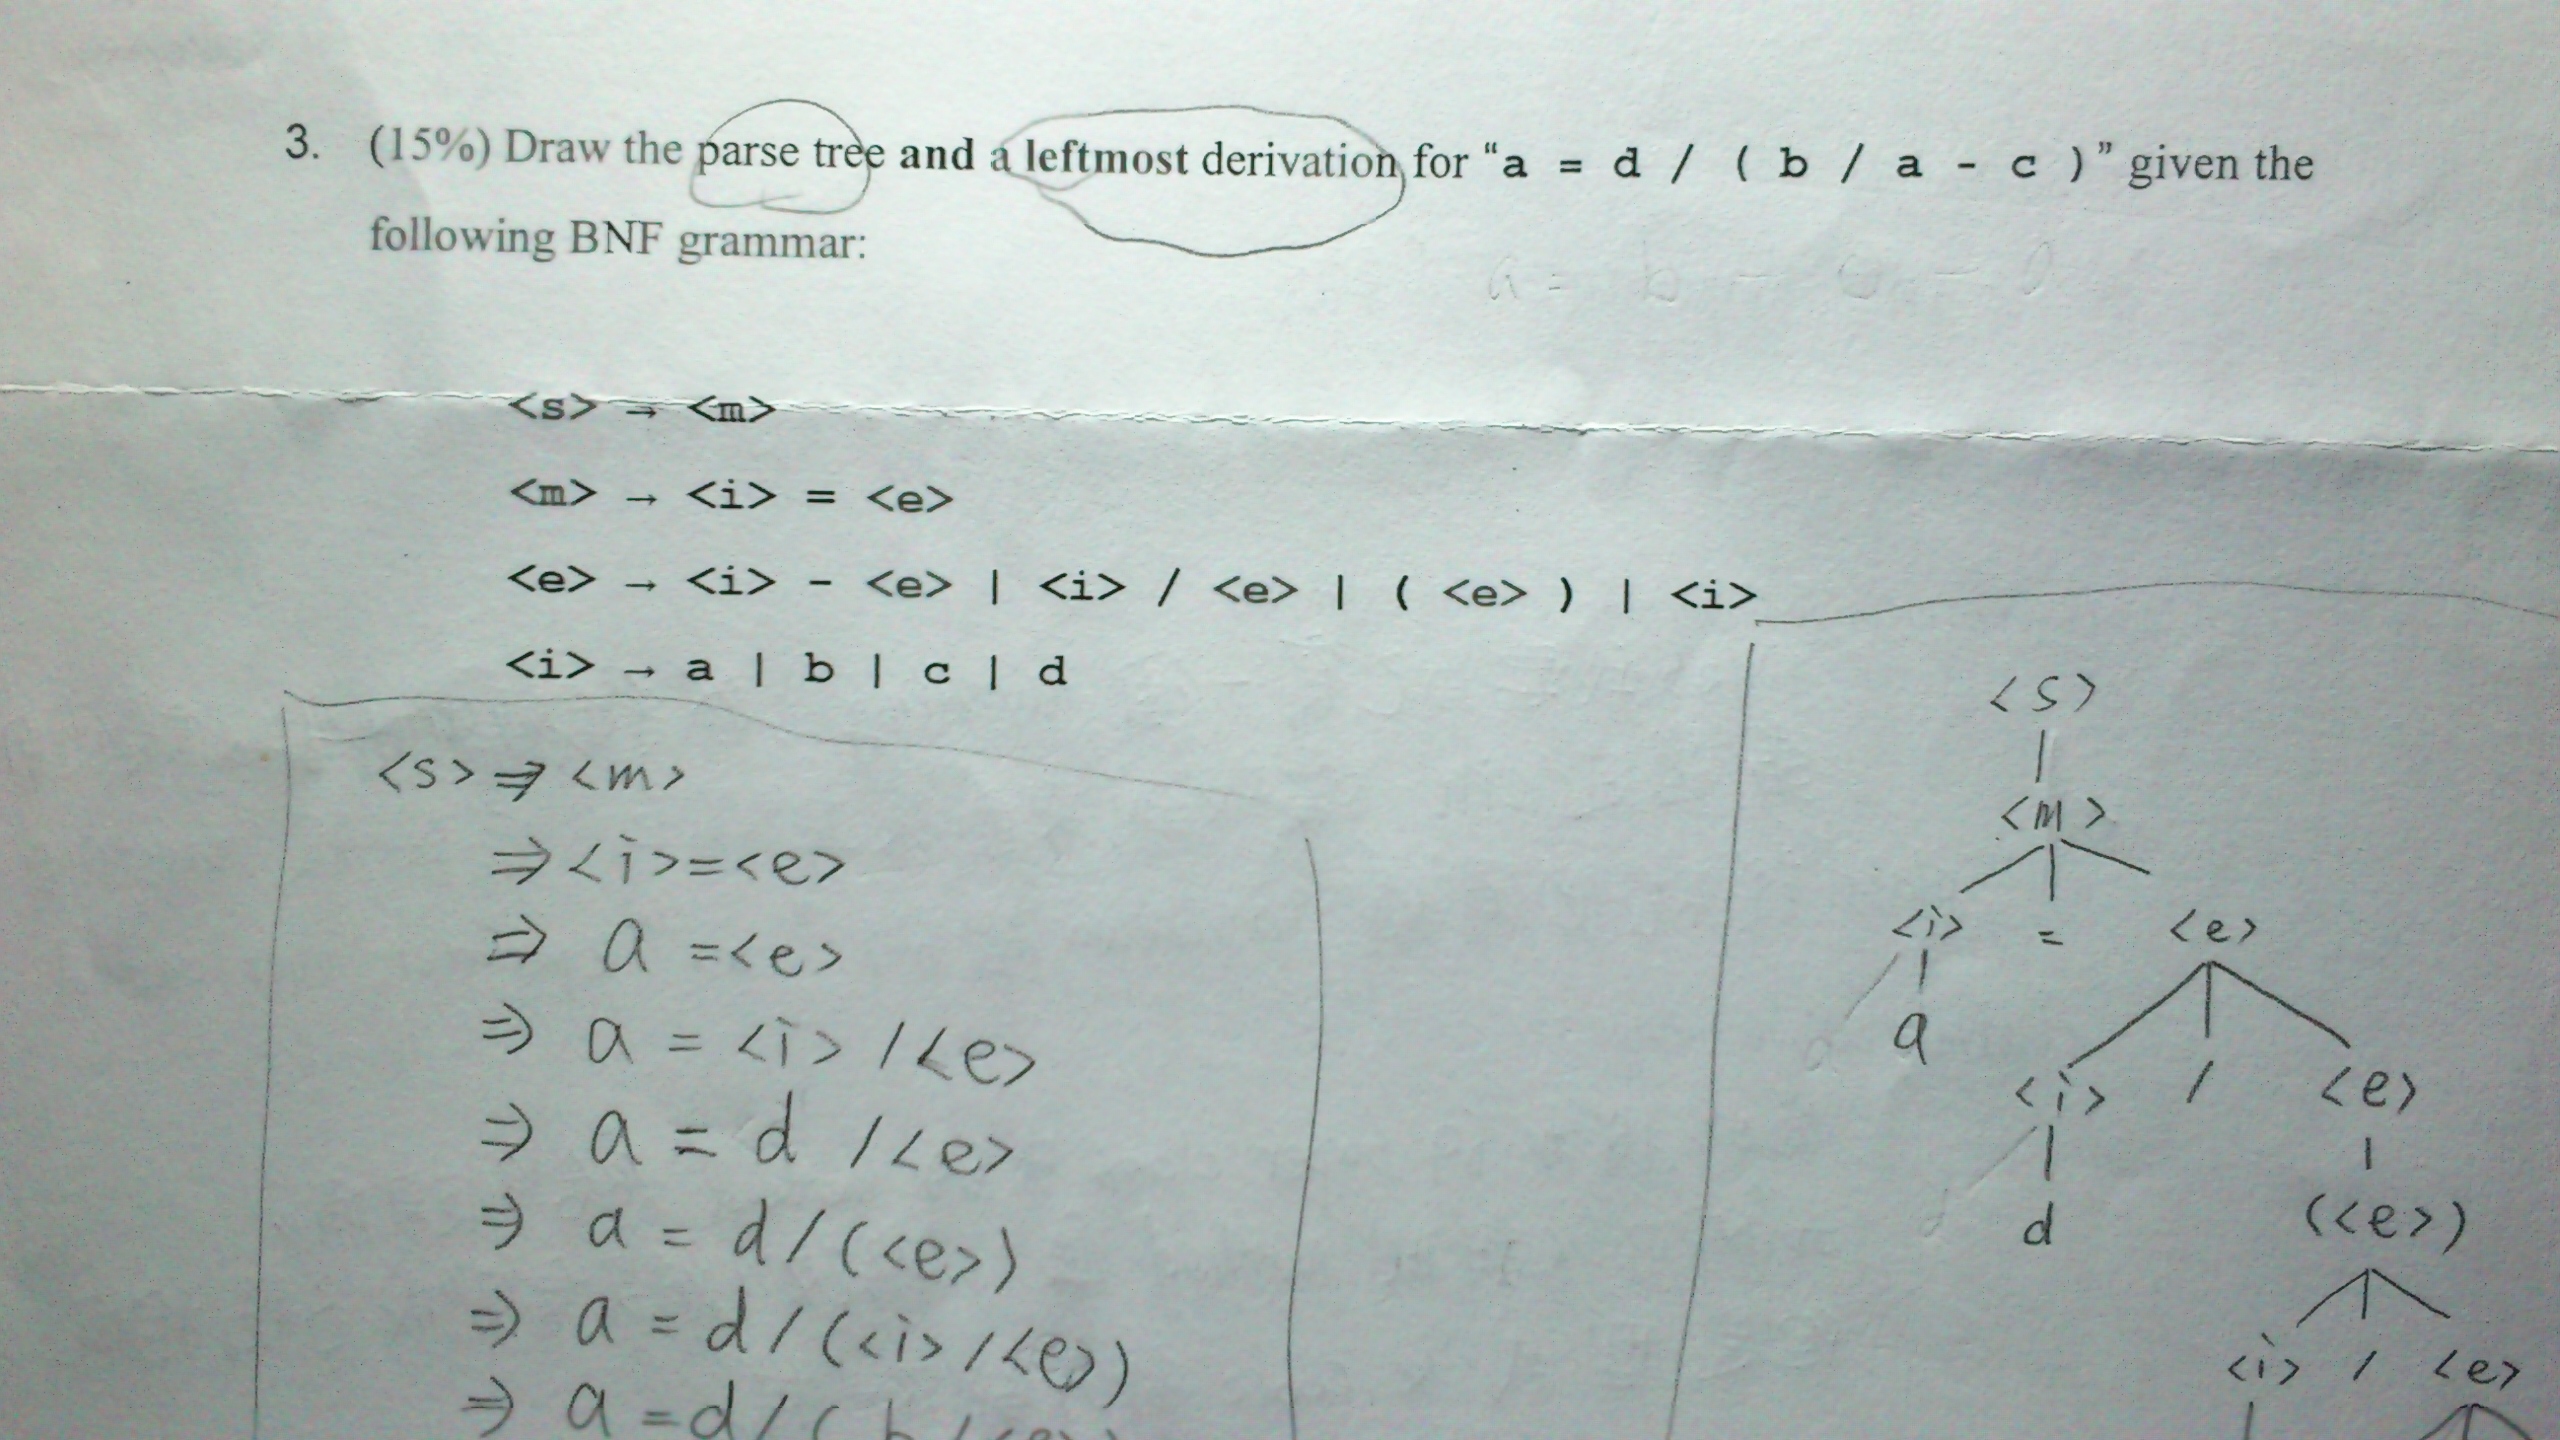 3. (15%) Draw the parse tree and a leftmost derivation for “a = d / ( b / a - c )” given the
following BNF grammar:
<s> → <m>
<m> → <i> = <e>
<e> → <i> - <e> | <i> / <e> | ( <e> ) | <i>
<i> → a | b | c | d
<s> ⇒ <m>
⇒ <i>=<e>
⇒ a =<e>
⇒ a = <i> /<e>
⇒ a = d /<e>
⇒ a = d/(<e>)
⇒ a = d/(<i>/<e>)
⇒ a =d/( b /<e>)
<s>
<m>
<i> = <e>
a
<i> / <e>
d
(<e>)
<i> / <e>